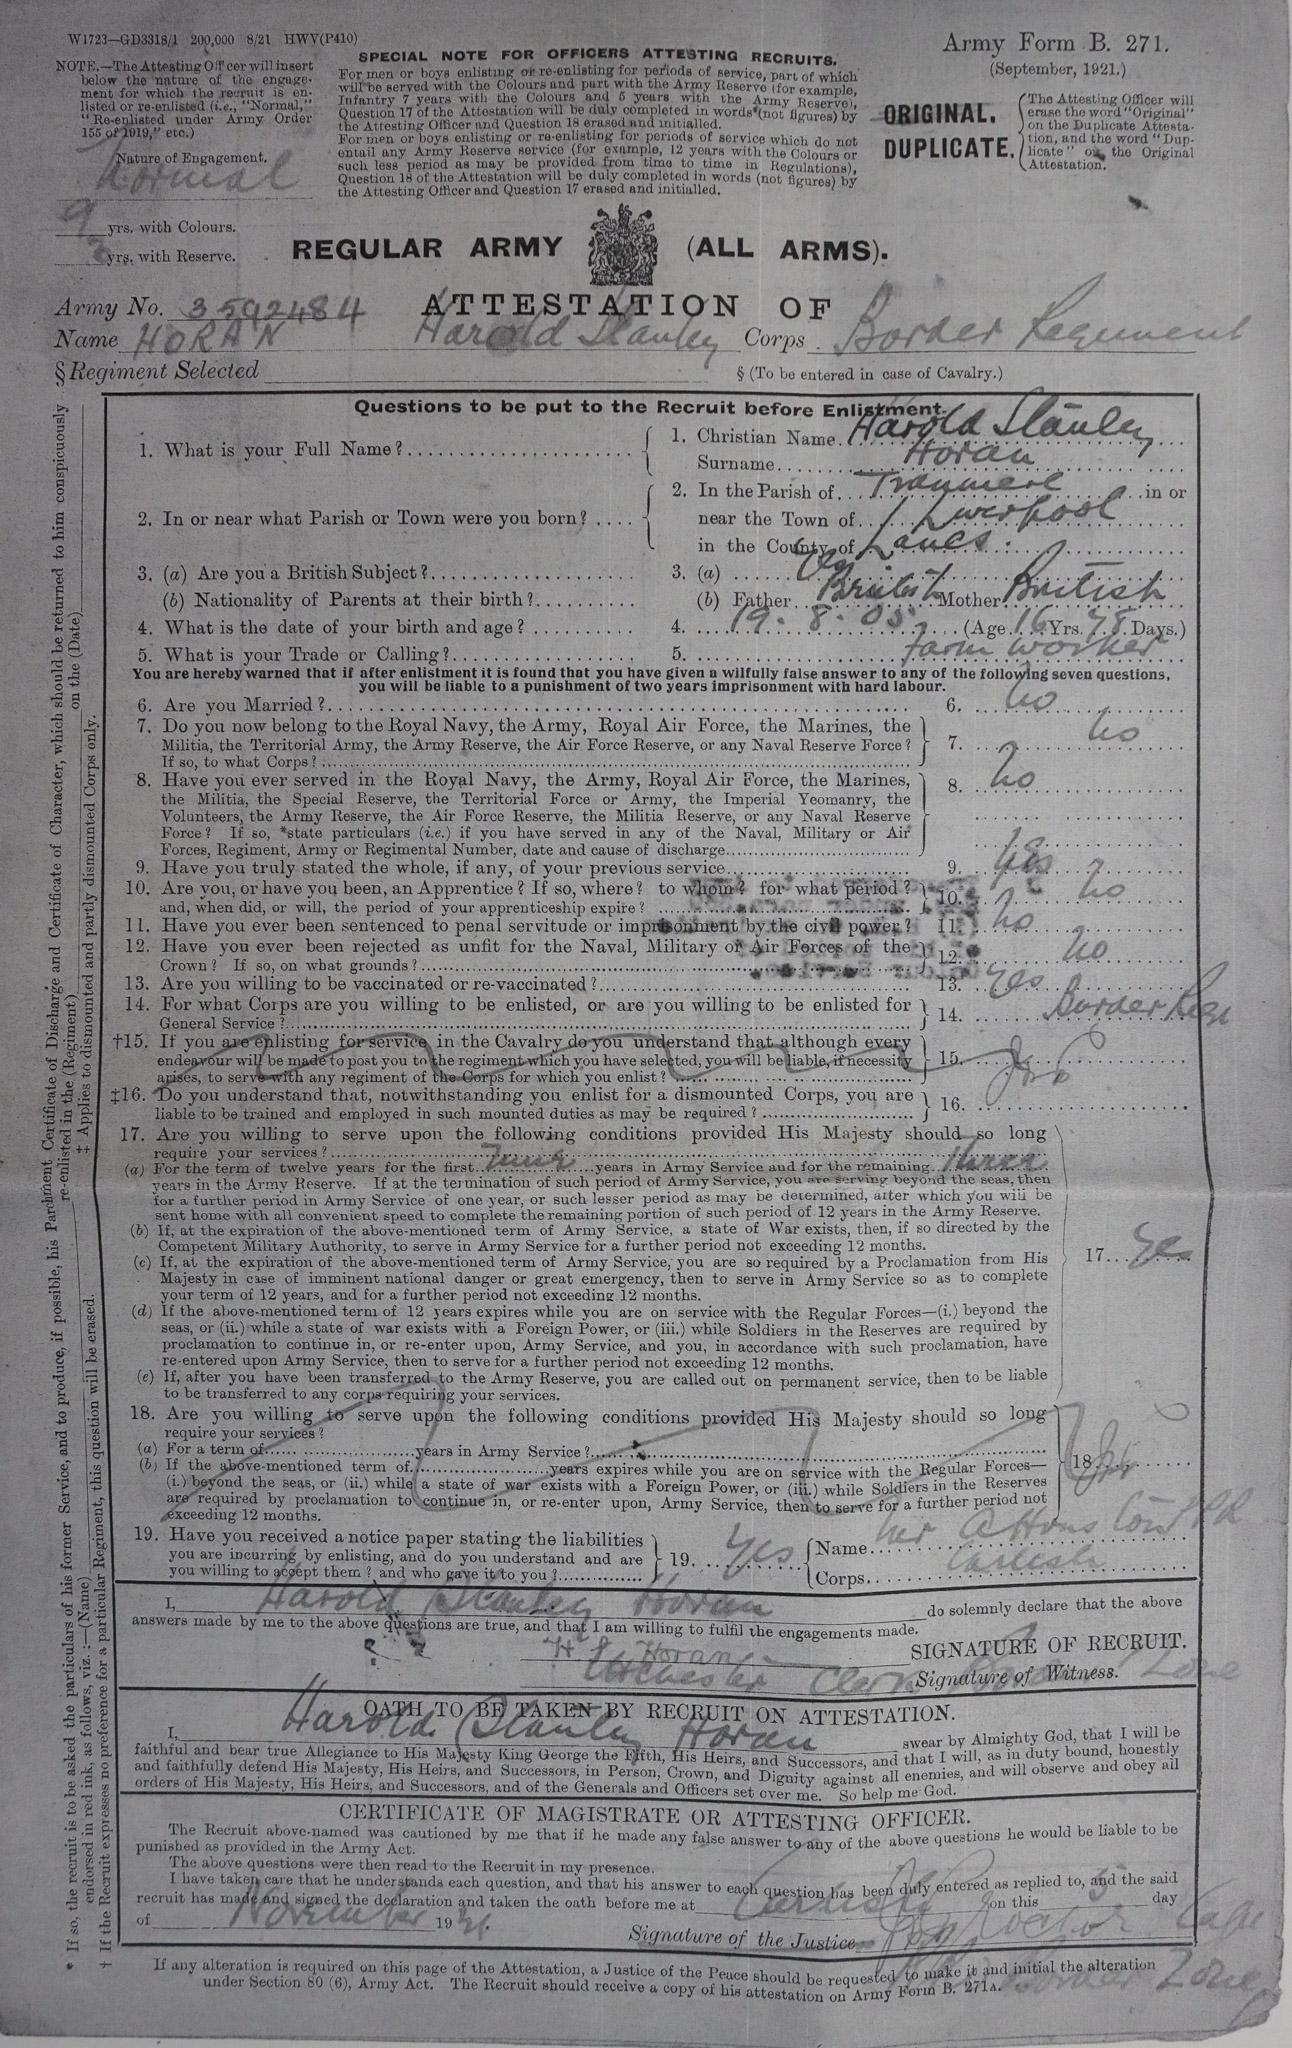 W1723—GD3318/1 200,000 8/21 HWV(P410)
Army Form B. 271.
(September, 1921.)
NOTE.—The Attesting Officer will insert
below the nature of the engage-
ment for which the recruit is en-
listed or re-enlisted (i.e., "Normal,"
"Re-enlisted under Army Order
155 of 1919," etc.)
Nature of Engagement.
Normal
9 yrs. with Colours.
3 yrs. with Reserve.
SPECIAL NOTE FOR OFFICERS ATTESTING RECRUITS.
For men or boys enlisting or re-enlisting for periods of service, part of which
will be served with the Colours and part with the Army Reserve (for example,
Infantry 7 years with the Colours and 5 years with the Army Reserve),
Question 17 of the Attestation will be duly completed in words (not figures) by
the Attesting Officer and Question 18 erased and initialled.
For men or boys enlisting or re-enlisting for periods of service which do not
entail any Army Reserve service (for example, 12 years with the Colours or
such less period as may be provided from time to time in Regulations),
Question 18 of the Attestation will be duly completed in words (not figures) by
the Attesting Officer and Question 17 erased and initialled.
ORIGINAL.
DUPLICATE.
The Attesting Officer will
erase the word "Original"
on the Duplicate Attesta-
tion, and the word "Dup-
licate" on the Original
Attestation.
REGULAR ARMY (ALL ARMS).
Army No. 3592484 ATTESTATION OF
Name HORAN Harold Stanley Corps Border Regiment
§ Regiment Selected § (To be entered in case of Cavalry.)
Questions to be put to the Recruit before Enlistment.
1. What is your Full Name? 1. Christian Name Harold Stanley
Surname Horan
2. In or near what Parish or Town were you born? 2. In the Parish of Tranmere in or
near the Town of Liverpool
in the County of Lancs.
3. (a) Are you a British Subject? 3. (a) Yes
(b) Nationality of Parents at their birth? (b) Father British Mother British
4. What is the date of your birth and age? 4. 19.8.05 (Age 16 Yrs. 78 Days.)
5. What is your Trade or Calling? 5. Farm Worker
You are hereby warned that if after enlistment it is found that you have given a wilfully false answer to any of the following seven questions,
you will be liable to a punishment of two years imprisonment with hard labour.
6. Are you Married? 6. No
7. Do you now belong to the Royal Navy, the Army, Royal Air Force, the Marines, the
Militia, the Territorial Army, the Army Reserve, the Air Force Reserve, or any Naval Reserve Force?
If so, to what Corps? 7. No
8. Have you ever served in the Royal Navy, the Army, Royal Air Force, the Marines,
the Militia, the Special Reserve, the Territorial Force or Army, the Imperial Yeomanry, the
Volunteers, the Army Reserve, the Air Force Reserve, the Militia Reserve, or any Naval Reserve
Force? If so, *state particulars (i.e.) if you have served in any of the Naval, Military or Air
Forces, Regiment, Army or Regimental Number, date and cause of discharge 8. No
9. Have you truly stated the whole, if any, of your previous service 9. Yes
10. Are you, or have you been, an Apprentice? If so, where? to whom? for what period?
and, when did, or will, the period of your apprenticeship expire? 10. No
11. Have you ever been sentenced to penal servitude or imprisonment by the civil power? 11. No
12. Have you ever been rejected as unfit for the Naval, Military or Air Forces of the
Crown? If so, on what grounds? 12. No
13. Are you willing to be vaccinated or re-vaccinated? 13. Yes
14. For what Corps are you willing to be enlisted, or are you willing to be enlisted for
General Service? 14. Border Regt
†15. If you are enlisting for service in the Cavalry do you understand that although every
endeavour will be made to post you to the regiment which you have selected, you will be liable, if necessity
arises, to serve with any regiment of the Corps for which you enlist? 15.
‡16. Do you understand that, notwithstanding you enlist for a dismounted Corps, you are
liable to be trained and employed in such mounted duties as may be required? 16.
17. Are you willing to serve upon the following conditions provided His Majesty should so long
require your services?
(a) For the term of twelve years for the first Nine years in Army Service and for the remaining Three
years in the Army Reserve. If at the termination of such period of Army Service, you are serving beyond the seas, then
for a further period in Army Service of one year, or such lesser period as may be determined, after which you will be
sent home with all convenient speed to complete the remaining portion of such period of 12 years in the Army Reserve.
(b) If, at the expiration of the above-mentioned term of Army Service, a state of War exists, then, if so directed by the
Competent Military Authority, to serve in Army Service for a further period not exceeding 12 months.
(c) If, at the expiration of the above-mentioned term of Army Service, you are so required by a Proclamation from His
Majesty in case of imminent national danger or great emergency, then to serve in Army Service so as to complete
your term of 12 years, and for a further period not exceeding 12 months.
17. Yes
(d) If the above-mentioned term of 12 years expires while you are on service with the Regular Forces—(i.) beyond the
seas, or (ii.) while a state of war exists with a Foreign Power, or (iii.) while Soldiers in the Reserves are required by
proclamation to continue in, or re-enter upon, Army Service, and you, in accordance with such proclamation, have
re-entered upon Army Service, then to serve for a further period not exceeding 12 months.
(e) If, after you have been transferred to the Army Reserve, you are called out on permanent service, then to be liable
to be transferred to any corps requiring your services.
18. Are you willing to serve upon the following conditions provided His Majesty should so long
require your services?
(a) For a term of years in Army Service?
(b) If the above-mentioned term of years expires while you are on service with the Regular Forces—
(i.) beyond the seas, or (ii.) while a state of war exists with a Foreign Power, or (iii.) while Soldiers in the Reserves
are required by proclamation to continue in, or re-enter upon, Army Service, then to serve for a further period not
exceeding 12 months. 18.
19. Have you received a notice paper stating the liabilities
you are incurring by enlisting, and do you understand and are
you willing to accept them? and who gave it to you? 19. Yes Name
Corps Carlisle
I, Harold Stanley Horan do solemnly declare that the above
answers made by me to the above questions are true, and that I am willing to fulfil the engagements made.
H S Horan SIGNATURE OF RECRUIT.
Signature of Witness.
OATH TO BE TAKEN BY RECRUIT ON ATTESTATION.
I, Harold Stanley Horan swear by Almighty God, that I will be
faithful and bear true Allegiance to His Majesty King George the Fifth, His Heirs, and Successors, and that I will, as in duty bound, honestly
and faithfully defend His Majesty, His Heirs, and Successors, in Person, Crown, and Dignity against all enemies, and will observe and obey all
orders of His Majesty, His Heirs, and Successors, and of the Generals and Officers set over me. So help me God.
CERTIFICATE OF MAGISTRATE OR ATTESTING OFFICER.
The Recruit above-named was cautioned by me that if he made any false answer to any of the above questions he would be liable to be
punished as provided in the Army Act.
The above questions were then read to the Recruit in my presence.
I have taken care that he understands each question, and that his answer to each question has been duly entered as replied to, and the said
recruit has made and signed the declaration and taken the oath before me at Carlisle on this 5 day
of November 1921
Signature of the Justice
If any alteration is required on this page of the Attestation, a Justice of the Peace should be requested to make it and initial the alteration
under Section 80 (6), Army Act. The Recruit should receive a copy of his attestation on Army Form B. 271A.
* If so, the recruit is to be asked the particulars of his former Service, and to produce, if possible, his Parchment Certificate of Discharge and Certificate of Character, which should be returned to him conspicuously
endorsed in red ink, as follows, viz. :—(Name) re-enlisted in the (Regiment) on the (Date)
† If the Recruit expresses no preference for a particular Regiment, this question will be erased. ‡ Applies to dismounted and partly dismounted Corps only.